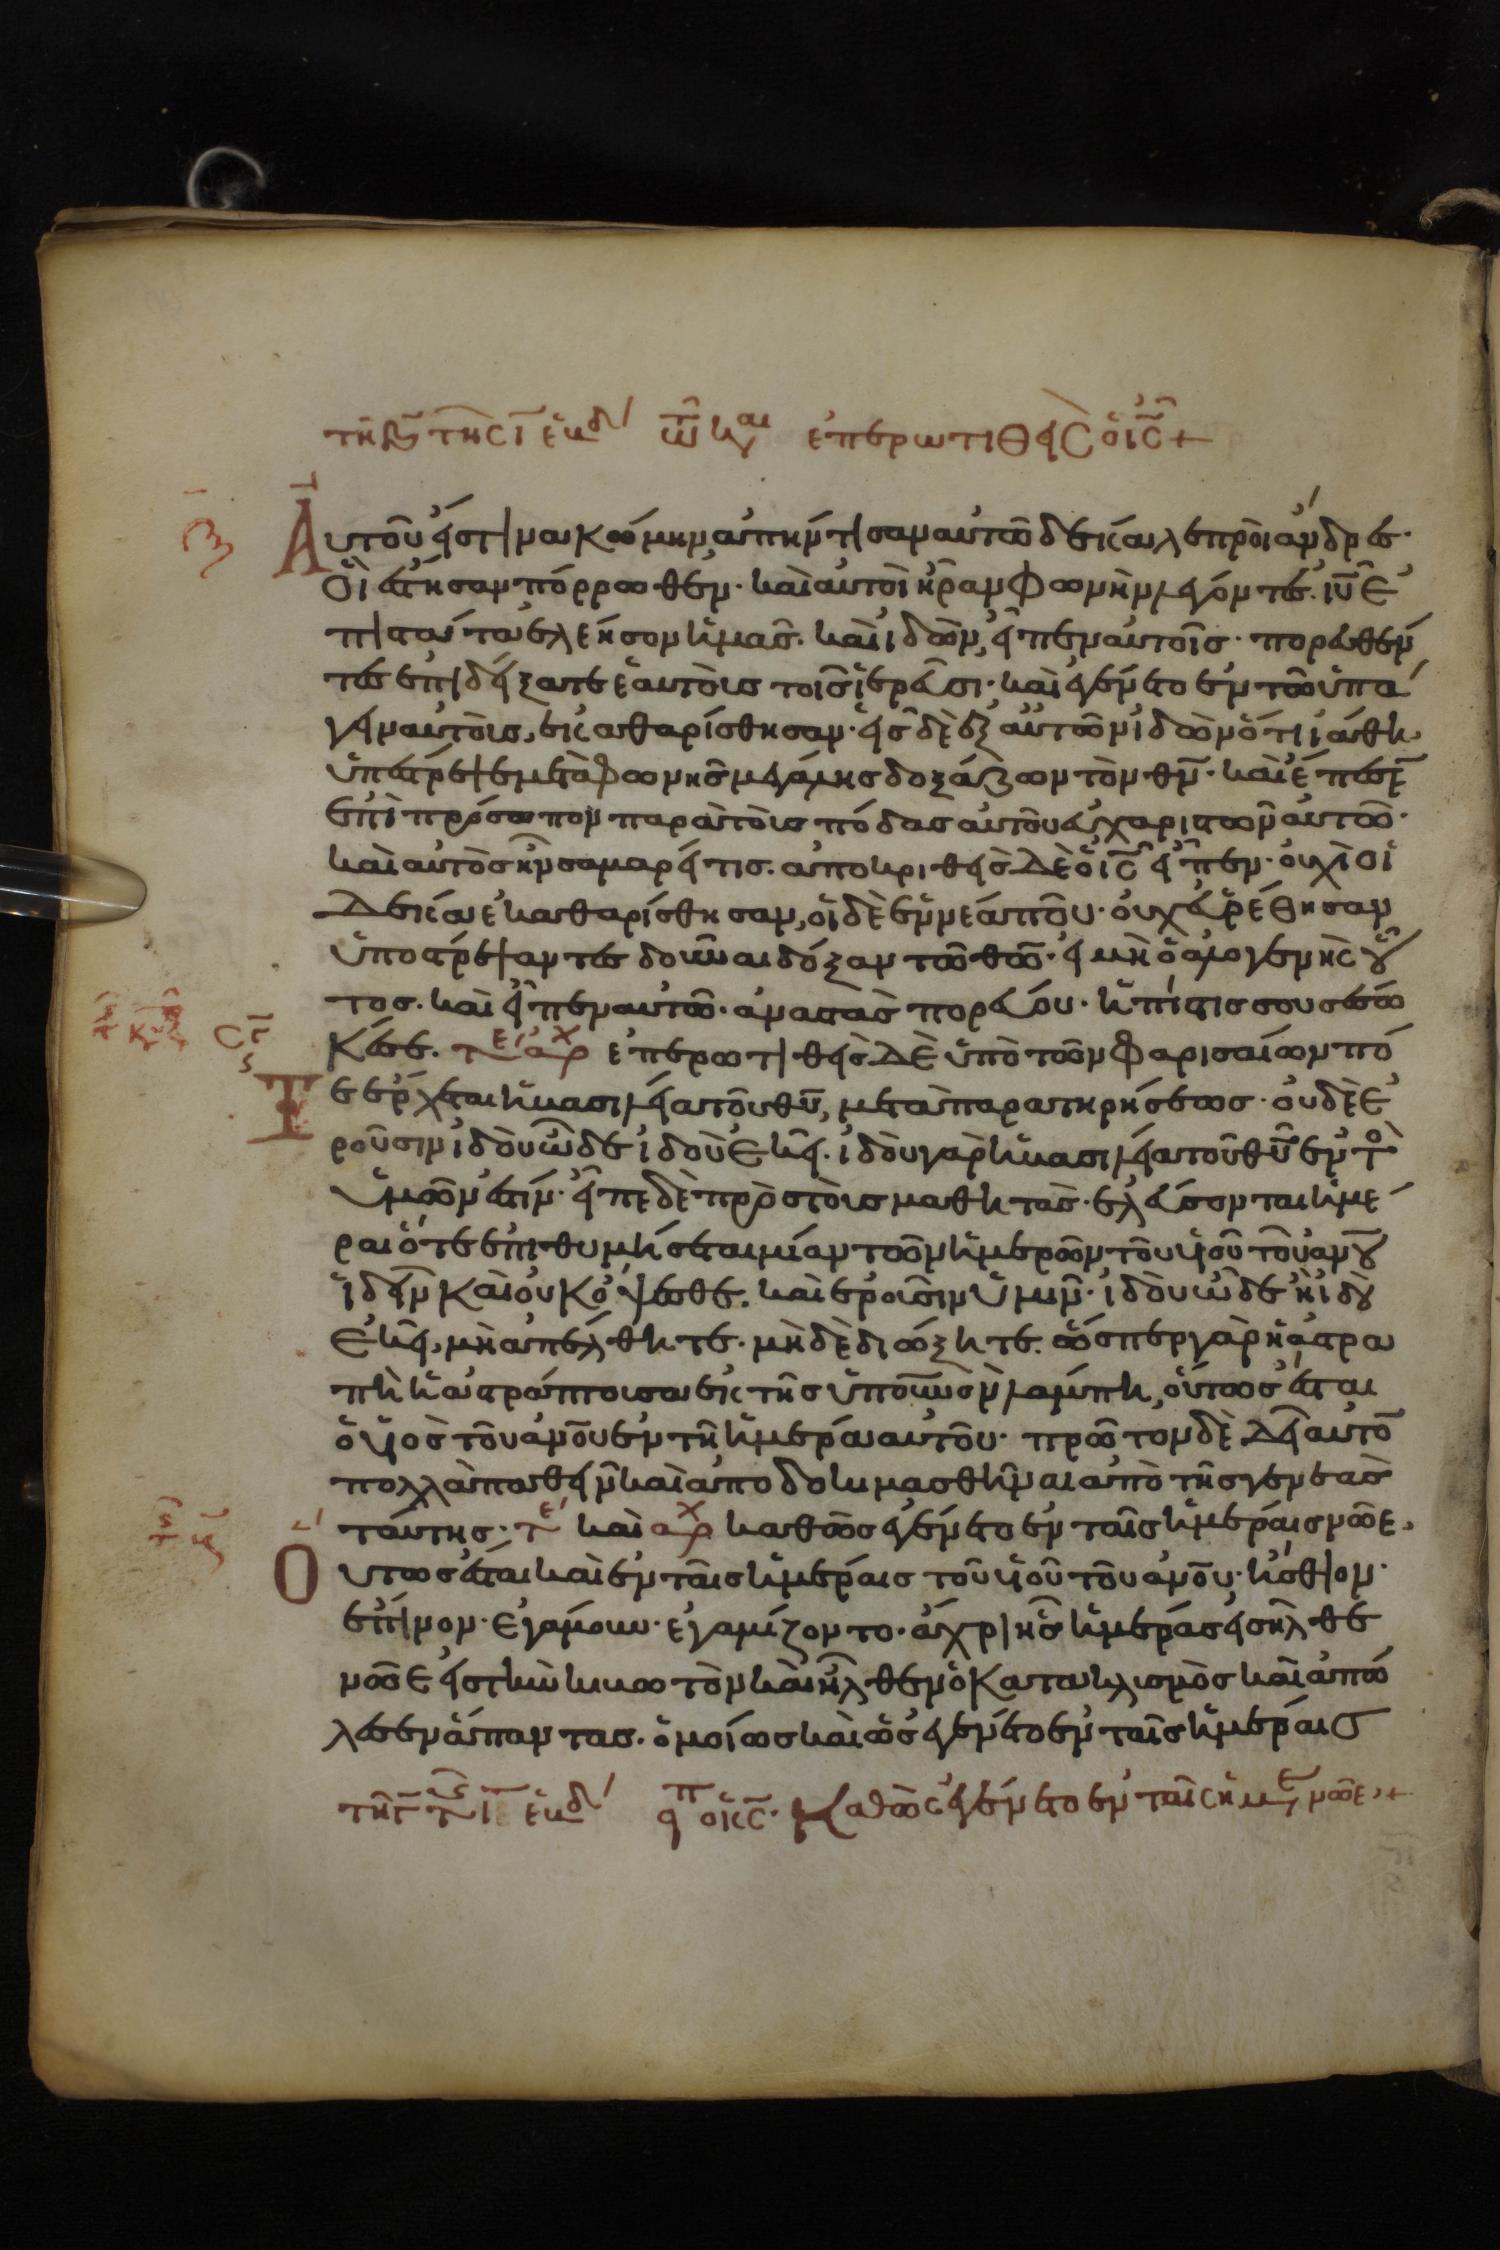 τῆ β τῆς ι ἑβδ τῶ κ αι ἐπερωτιθεὶς ὁ ις +
Αυτοῦ εἴστινα κώμην ἀπήντισαν αὐτῶ δέκα λεπροὶ ἄνδρες·
Οἳ ἔστησαν πόρρωθεν· καὶ αὐτοὶ ἦραν φωνὴν λέγοντες· ιυ ἐ
πιστάτα ἐλέησον ἡμᾶς. καὶ ἰδὼν, εἶπεν αὐτοῖς· πορευθέν
τες ἐπιδείξατε ἑαυτοὺς τοῖς ἱερεῦσι· καὶ ἐγένετο ἐν τῶ ὑπά
γειν αὐτοὺς, ἐκαθαρίσθησαν· εἷς δὲ ἐξ αὐτῶν ἰδὼν ὅτι ἰάθη
ὑπέστρεψε μετὰ φωνῆς μεγάλης δοξάζων τὸν θν· καὶ ἔπεσεν
ἐπὶ πρόσωπον παρὰ τοὺς πόδας αὐτοῦ εὐχαριστῶν αὐτῶ·
καὶ αὐτὸς ἦν σαμαρείτις. ἀποκριθεὶς δὲ ὁ ις εἶπεν· οὐχὶ οἱ
δέκα ἐκαθαρίσθησαν, οἱ δὲ ἐννέα ποῦ· οὐχ εὑρέθησαν
ὑποστρέψαντες δοῦναι δόξαν τῶ θῶ· εἰ μὴ ὁ ἀλλογενὴς οὗ
τος. καὶ εἶπεν αὐτῶ· ἀναστὰς πορεύου· ἡ πίστις σου σέσω
κέσε. τε αρχ ἐπερωτιθεὶς δὲ ὑπὸ τῶν φαρισαίων πό
τε ἔρχεται ἡ βασιλεία τοῦ θυ, μετὰ παρατηρήσεως· οὐδὲ ἐ
ροῦσιν ἰδοὺ ὧδε ἰδοὺ ἐκεῖ. ἰδοὺ γὰρ ἡ βασιλεία τοῦ θυ ἐντὸ
ὑμῶν ἐστίν· εἶπε δὲ πρὸς τοὺς μαθητάς· ἐλεύσονται ἡμέ
ραι ὅτε ἐπιθυμήσεται μίαν τῶν ἡμερῶν τοῦ υἱοῦ τοῦ ανου
ἰδεῖν καὶ οὐκ ὄψεσθε. καὶ ἐροῦσιν ὑμῖν· ἰδοὺ ὧδε ἢ ἰδοὺ
ἐκεῖ, μὴ ἀπέλθητε. μὴ δὲ διώξητε. ὥσπερ γὰρ ἡ ἀστρα
πὴ ἡ ἀστράπτουσα ἐκ τῆς ὑπ οὐνὸν λάμπη, οὕτως ἔσται
ὁ υἱὸς τοῦ ανου ἐν τῆ ἡμέρα αὐτοῦ· πρῶτον δὲ δεῖ αὐτὸ
πολλὰ παθεῖν καὶ ἀποδοκιμασθῆναι ἀπὸ τῆς γενεᾶς
ταύτης· τε καὶ αρχ καθὼς ἐγένετο ἐν ταῖς ἡμέραις νῶε,
Ουτως ἔσται καὶ ἐν ταῖς ἡμέραις τοῦ υἱοῦ τοῦ ανου· ἤσθιον·
ἔπινον· ἐγάμουν· ἐγαμίζοντο· ἄχρι ἧς ἡμέρας εἰσῆλθε
νῶε εἰς τὴν κιβωτὸν καὶ ἦλθεν ὁ κατακλισμὸς καὶ ἀπώ
λεσεν ἅπαντας. ὁμοίως καὶ ὡς ἐγένετο ἐν ταῖς ἡμέραις
τῆ γ τῆς ι ἑβδ εἶπ ὁ κς· καθὼς ἐγένετο ἐν ταῖς ἡμερ νῶε +